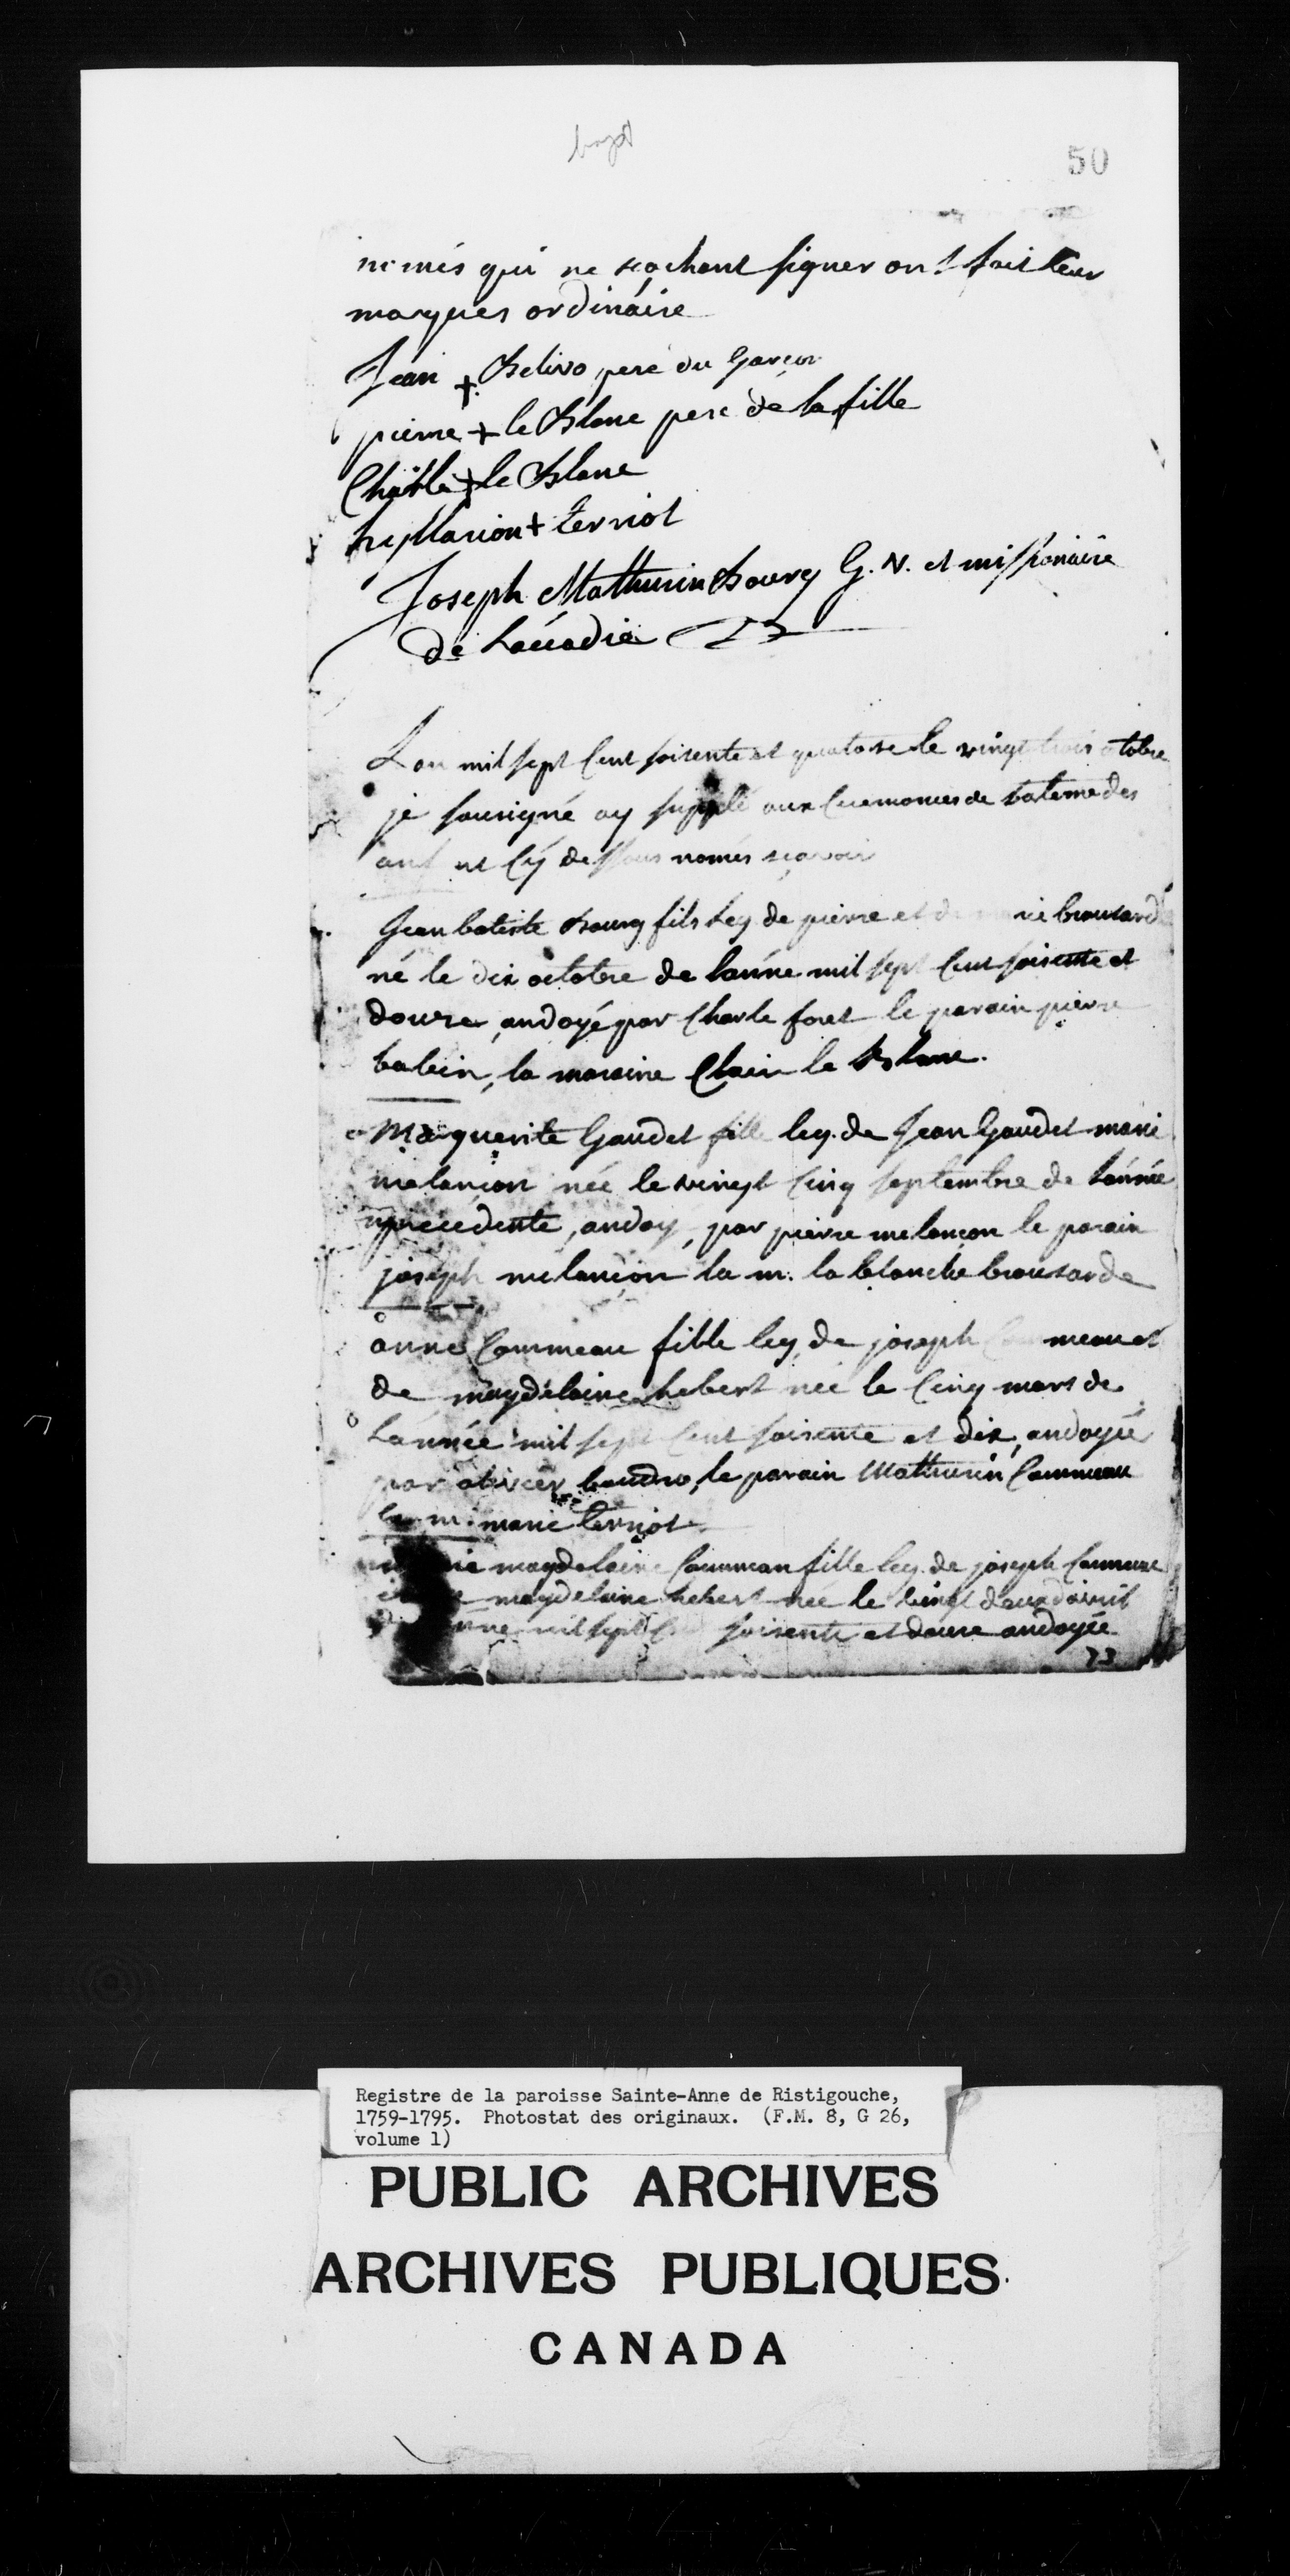 bapt
50
només qui ne sçachant signer ont fait leur
marques ordinaire
Jean + Belivo pere du Garçon
pierre + le Blanc pere de la fille
Charle + le Blanc
hyllarion + terriot
Joseph Mathurin Bourg G. V. et missionaire
de Lacadie
Lan mil sept Cent soisente et quatorse le vingt trois octobre
je sousigné ay supplé aux Ceremonies de bateme des
enf nt Cy dessous només sçavoir
Jean batiste Bourg fils leg de pierre et de rie brousard
né le dix octobre de lannée mil sept Cent soisente et
douze, andoyé par Charle foret le parain pierre
babin, la maraine Clair le Blanc.
Marguerite Gaudet fille leg. de Jean Gaudet marie
melançon née le vingt Cinq septembre de lannée
precedente, andoy, par pierre melançon le parain
joseph melançon la m. la blanche brousarde
anne Commeau fille leg, de joseph Commeau et
de magdelaine hebert née le Cinq mars de
Lannée mil sept Cent soisente et dix, andoyée
par olivier boudro, le parain Mathurin Commeau
la m. marie terriot.
magdelaine Commeau fille leg. de joseph Commeau
magdelaine hebert née le vingt deux davril
nnée mil sept C soisente et douze andoyée
73
Registre de la paroisse Sainte-Anne de Ristigouche,
1759-1795. Photostat des originaux. (F.M. 8, G 26,
volume 1)
PUBLIC ARCHIVES
ARCHIVES PUBLIQUES
CANADA